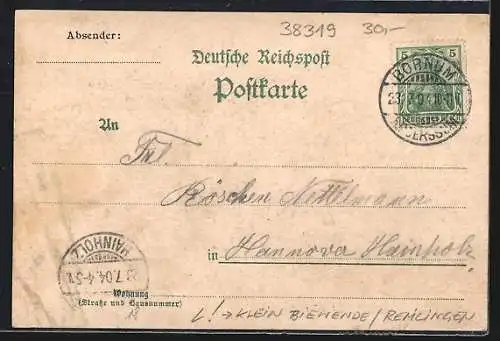 38319 30,-
Absender:
5
Deutsche Reichspost
Postkarte
BORNUM
An
Frl.
Röschen Nettelmann
in Hannover Hainholz
HAINHOLZ
7.04.4-5N
Wohnung
(Straße und Hausnummer)
L! → KLEIN BIEWENDE / REMLINGEN